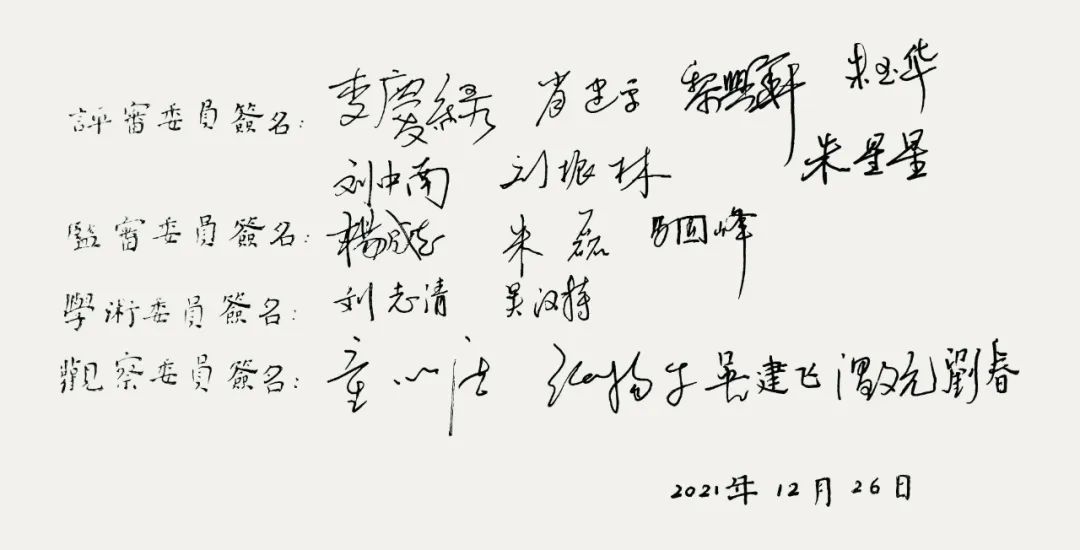 評審委員簽名: 李慶綠 肖建宇 黎興軒 朱玉华
刘中南 刘振林 朱星星
監審委員簽名: 楊成志 朱磊 馬國峰
學術委員簽名: 刘志清 吴汉持
觀察委員簽名: 童心 吴建飞 劉春
2021年12月26日